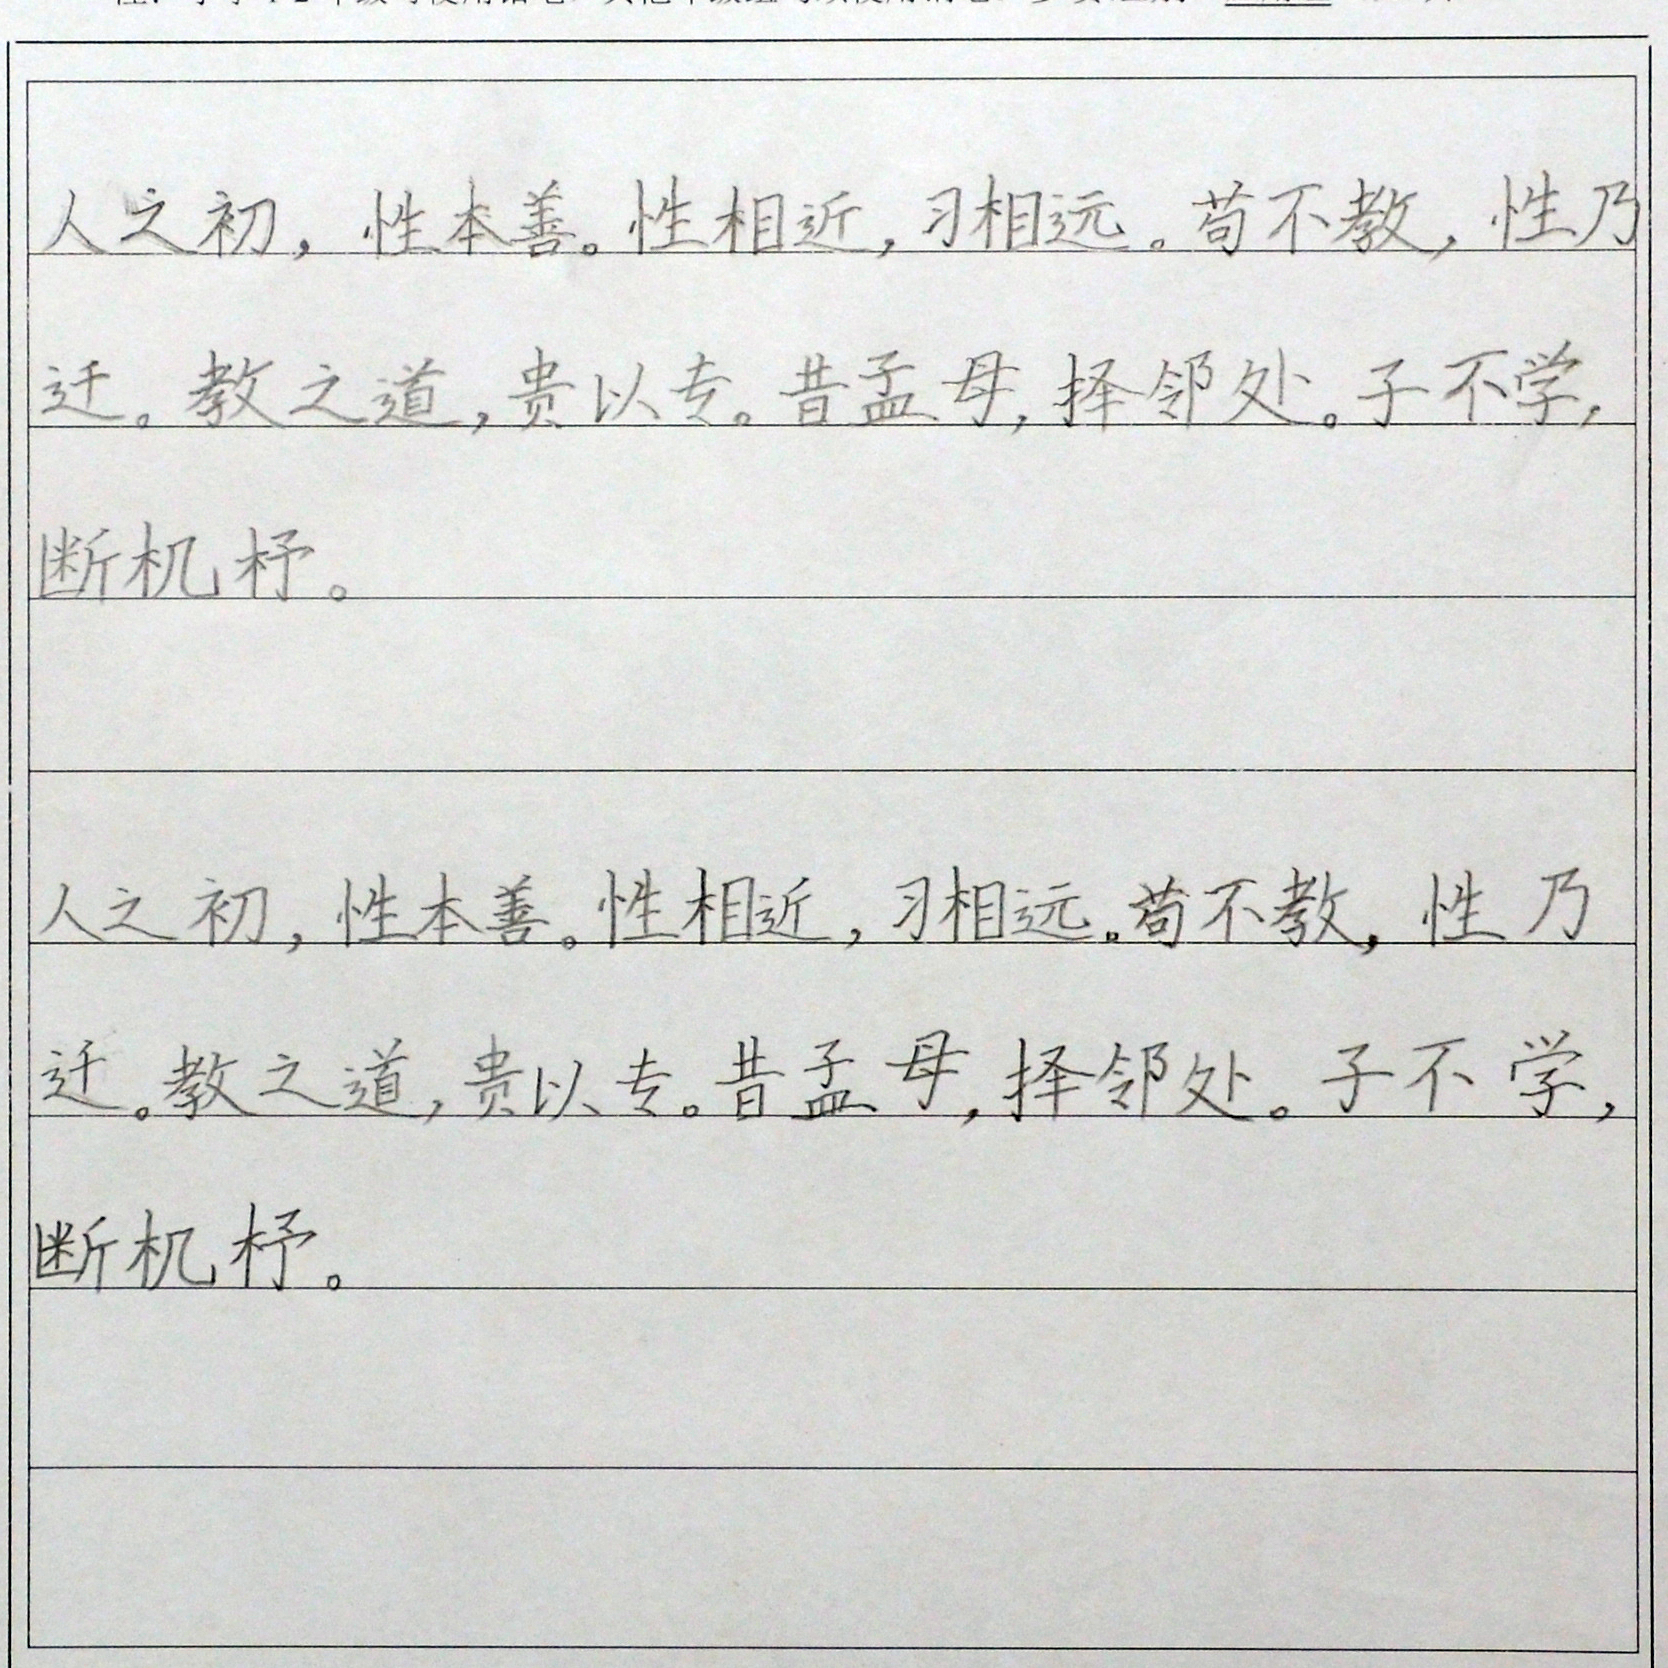 人之初，性本善。性相近，习相远。苟不教，性乃
迁。教之道，贵以专。昔孟母，择邻处。子不学，
断机杼。
人之初，性本善。性相近，习相远。苟不教，性乃
迁。教之道，贵以专。昔孟母，择邻处。子不学，
断机杼。